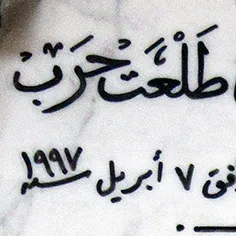 طَلْعَت حَرَبْ
فق ٧ أبريل سنة ١٩٩٧